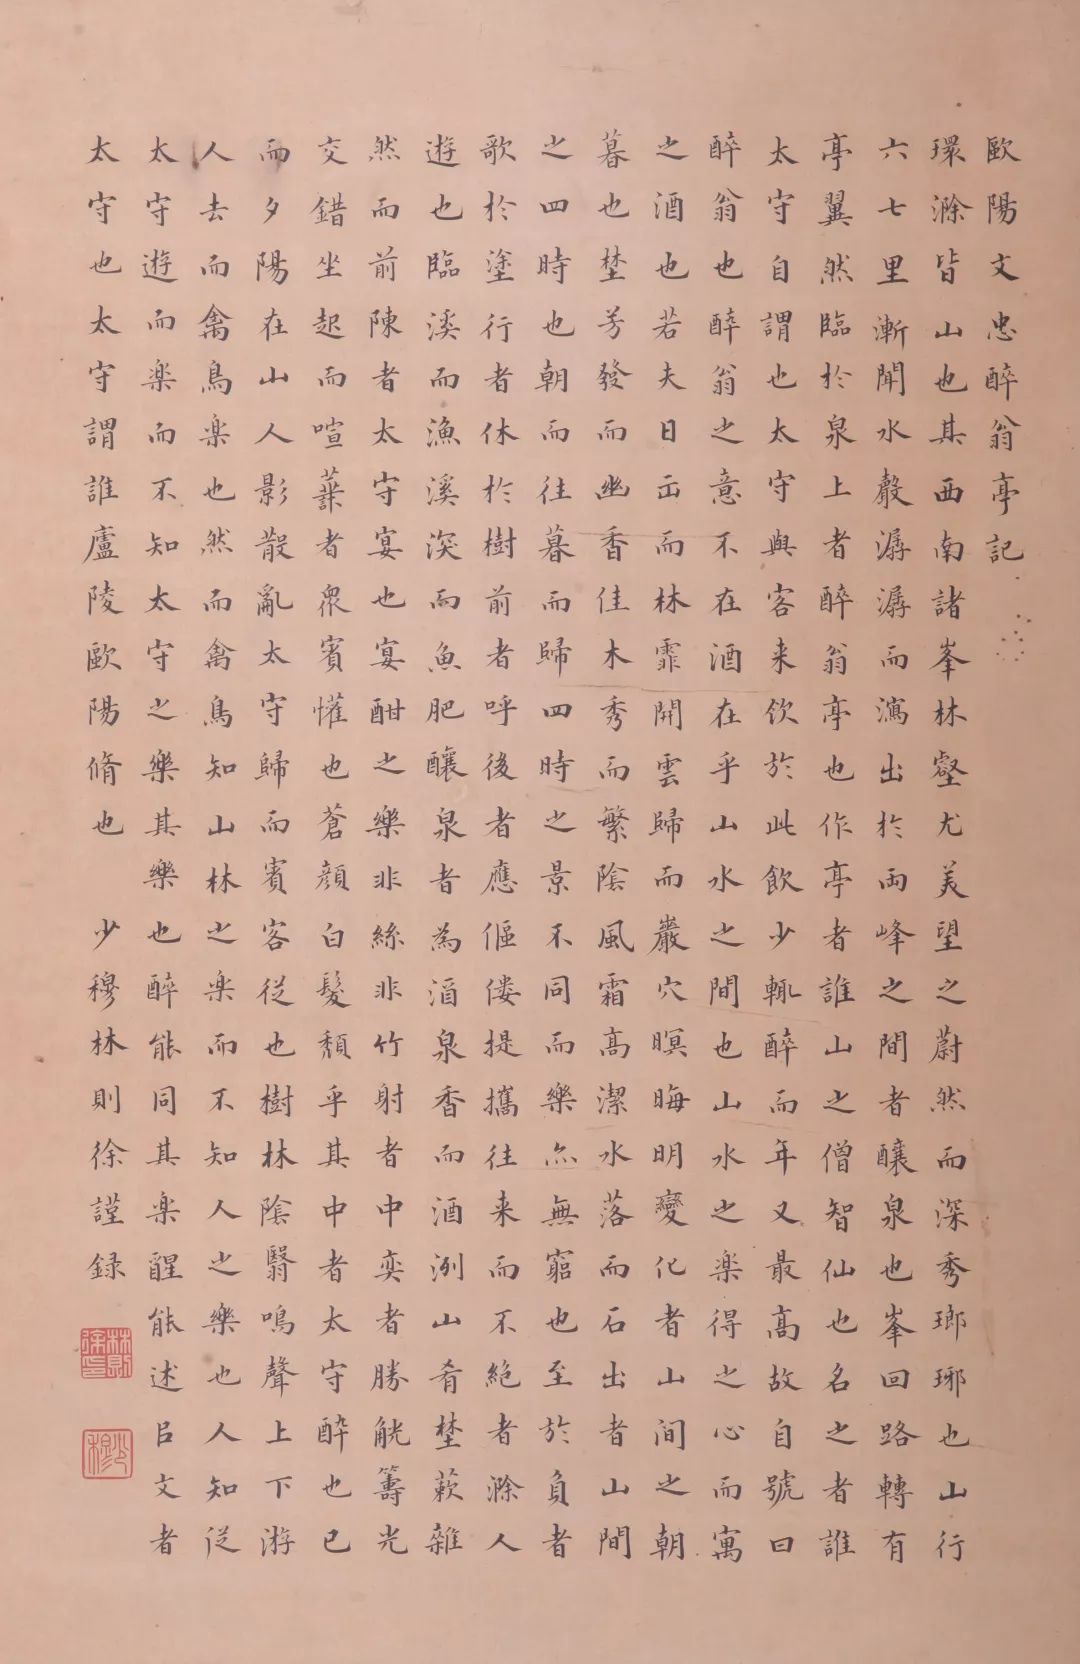 歐陽文忠醉翁亭記
環滁皆山也其西南諸峯林壑尤美望之蔚然而深秀瑯琊也山行
六七里漸聞水聲潺潺而瀉出於兩峰之間者釀泉也峯回路轉有
亭翼然臨於泉上者醉翁亭也作亭者誰山之僧智仙也名之者誰
太守自謂也太守與客来飲於此飲少輒醉而年又最高故自號曰
醉翁也醉翁之意不在酒在乎山水之間也山水之楽得之心而寓
之酒也若夫日出而林霏開雲歸而巖穴暝晦明變化者山间之朝
暮也埜芳發而幽香佳木秀而繁陰風霜高潔水落而石出者山間
之四時也朝而往暮而歸四時之景不同而樂亦無窮也至於負者
歌於塗行者休於樹前者呼後者應傴僂提攜往来而不絶者滁人
遊也臨溪而漁溪深而魚肥釀泉者為酒泉香而酒洌山肴埜蔌雜
然而前陳者太守宴也宴酣之樂非絲非竹射者中奕者勝觥籌光
交錯坐起而喧譁者衆賓懽也蒼顔白髮頽乎其中者太守醉也已
而夕陽在山人影散亂太守歸而賓客従也樹林陰翳鳴聲上下游
人去而禽鳥楽也然而禽鳥知山林之楽而不知人之樂也人知従
太守遊而楽而不知太守之樂其樂也醉能同其楽醒能述㠯文者
太守也太守謂誰廬陵歐陽脩也 少穆林則徐謹録
林則徐印
少穆